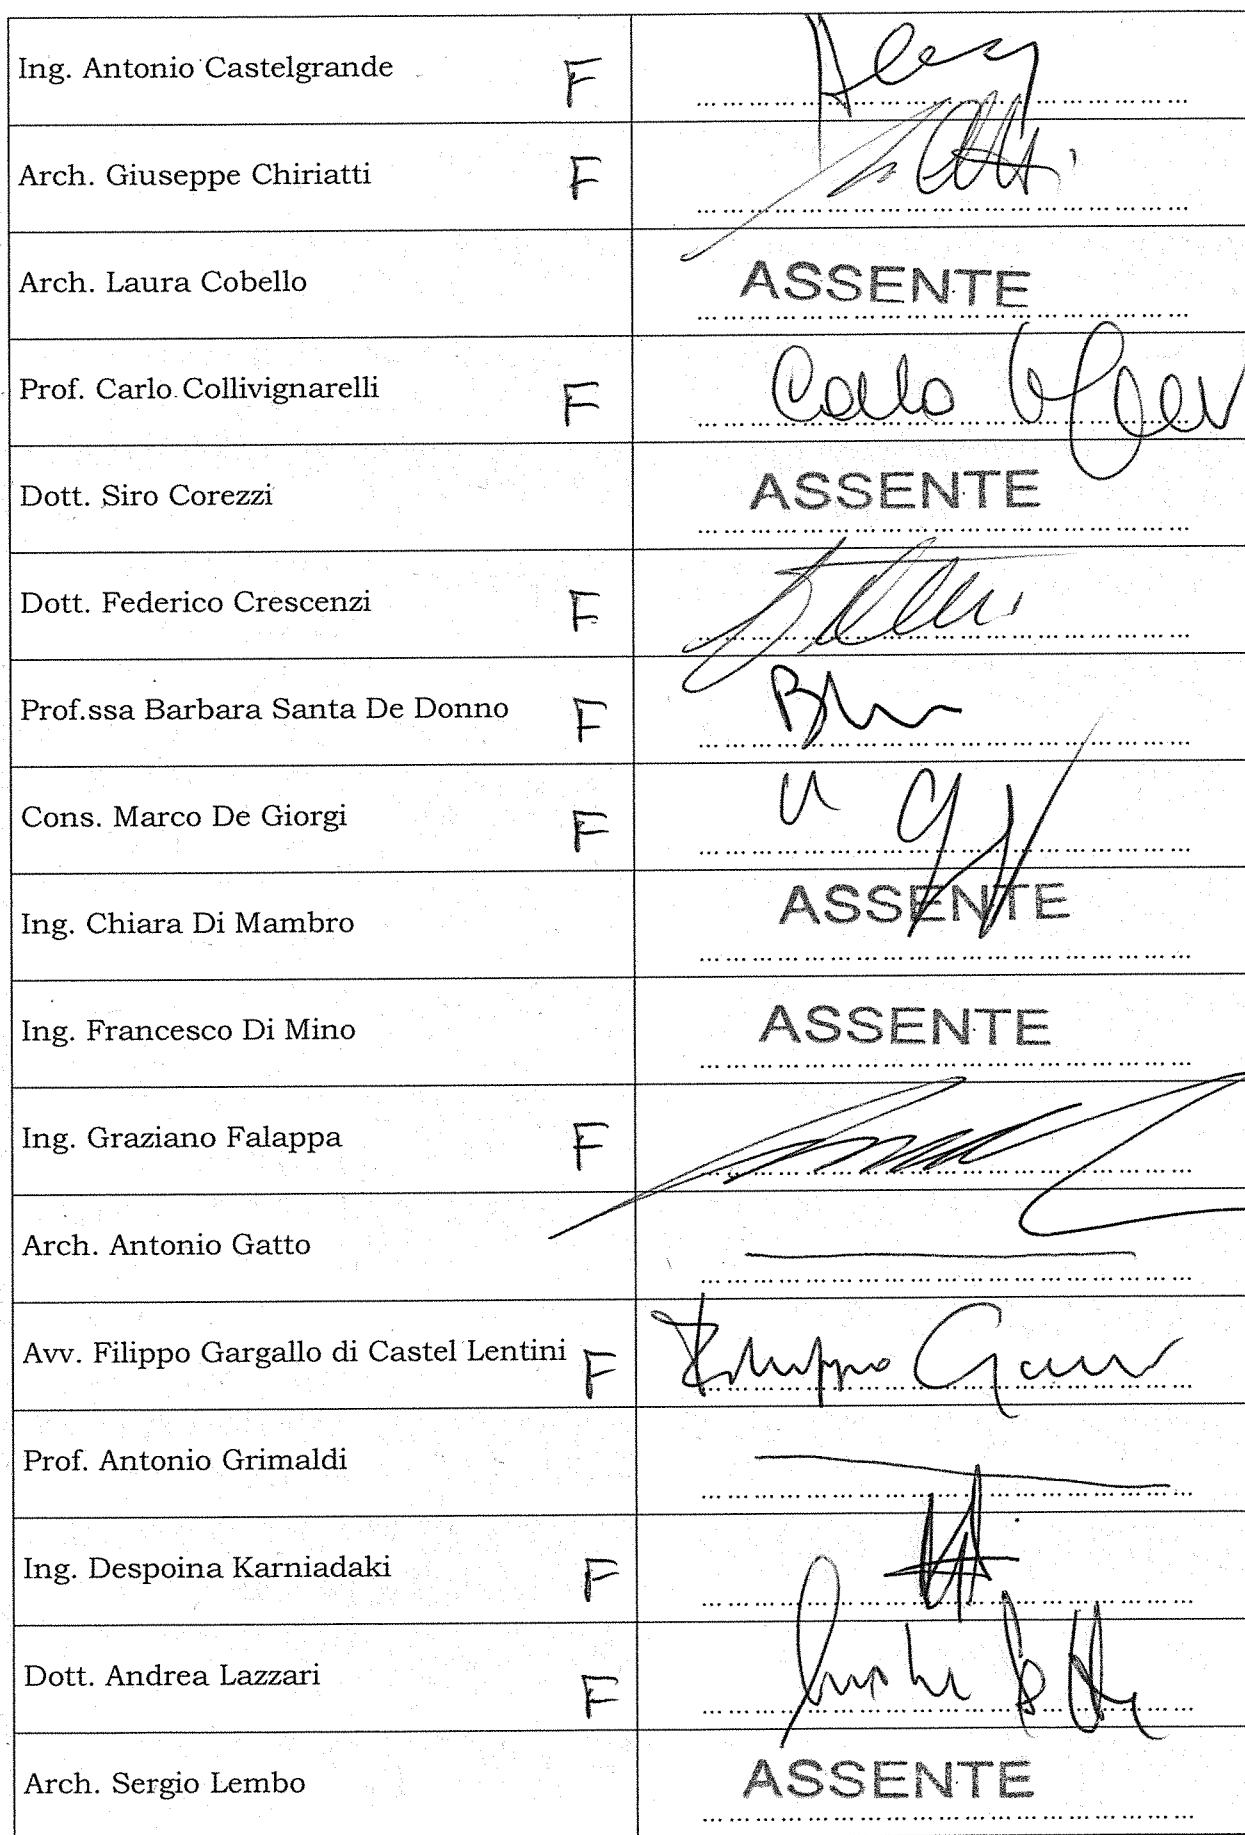 Ing. Antonio Castelgrande F
Arch. Giuseppe Chiriatti F
Arch. Laura Cobello ASSENTE
Prof. Carlo Collivignarelli F Carlo
Dott. Siro Corezzi ASSENTE
Dott. Federico Crescenzi F
Prof.ssa Barbara Santa De Donno F
Cons. Marco De Giorgi F
Ing. Chiara Di Mambro ASSENTE
Ing. Francesco Di Mino ASSENTE
Ing. Graziano Falappa F
Arch. Antonio Gatto
Avv. Filippo Gargallo di Castel Lentini F Filippo
Prof. Antonio Grimaldi
Ing. Despoina Karniadaki F
Dott. Andrea Lazzari F
Arch. Sergio Lembo ASSENTE